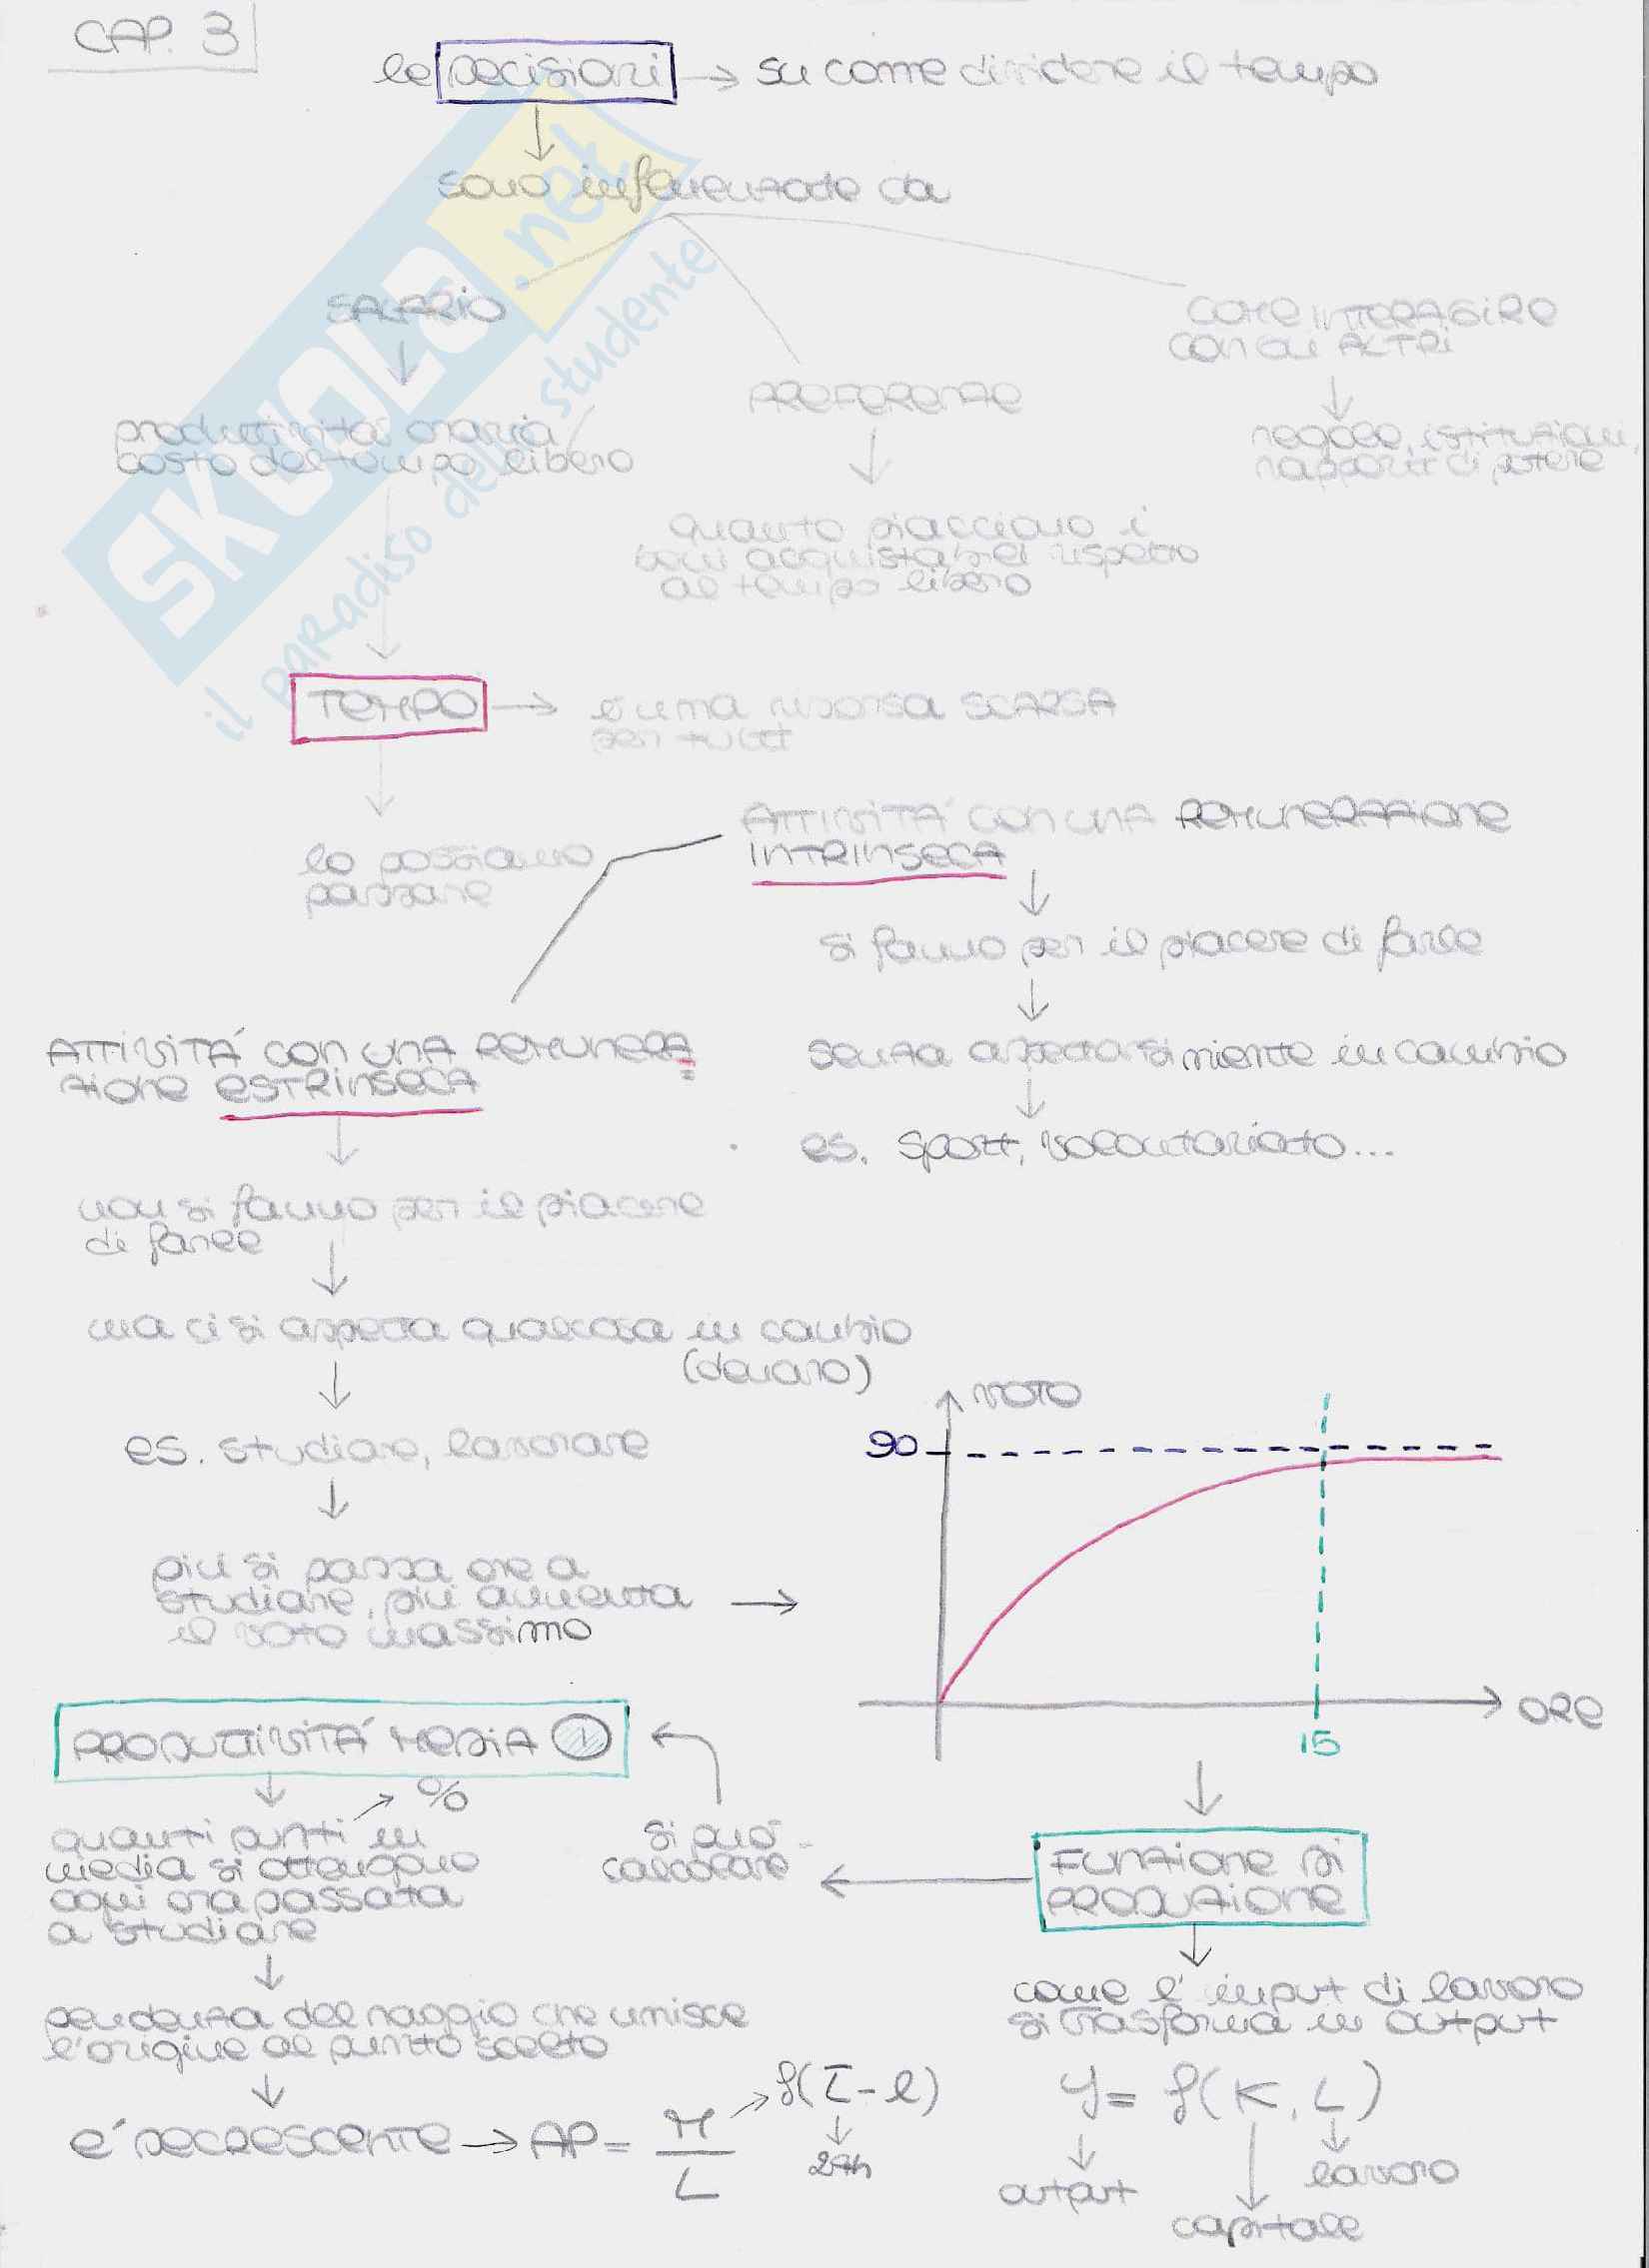 CAP. 3
le DECISIONI → su come dividere il tempo
sono influenzate da
SALARIO
COME INTERAGIRE
CON GLI ALTRI
PREFERENZE
produttività oraria/
costo del tempo libero
regole, istituzioni,
rapporti di potere
quanto piacciono i
beni acquistabili rispetto
al tempo libero
TEMPO → è una risorsa SCARSA
per tutti
ATTIVITÀ CON UNA REMUNERAZIONE
INTRINSECA
lo possiamo
passare
si fanno per il piacere di farle
ATTIVITÀ CON UNA REMUNERA
ZIONE ESTRINSECA
senza aspettarsi niente in cambio
es. sport, volontariato...
non si fanno per il piacere
di farle
ma ci si aspetta qualcosa in cambio
(denaro)
VOTO
90
es. studiare, lavorare
più si passa ore a
studiare, più aumenta
il voto massimo
ORE
15
PRODUTTIVITÀ MEDIA 1
%
quanti punti in
media si ottengono
ogni ora passata
a studiare
si può
calcolare
FUNZIONE DI
PRODUZIONE
pendenza del raggio che unisce
l'origine al punto scelto
come l'input di lavoro
si trasforma in output
è DECRESCENTE → AP = M/L
f(T-l)
24h
y = f(K, L)
output
lavoro
capitale
SKUOLA.net
il paradiso dello studente